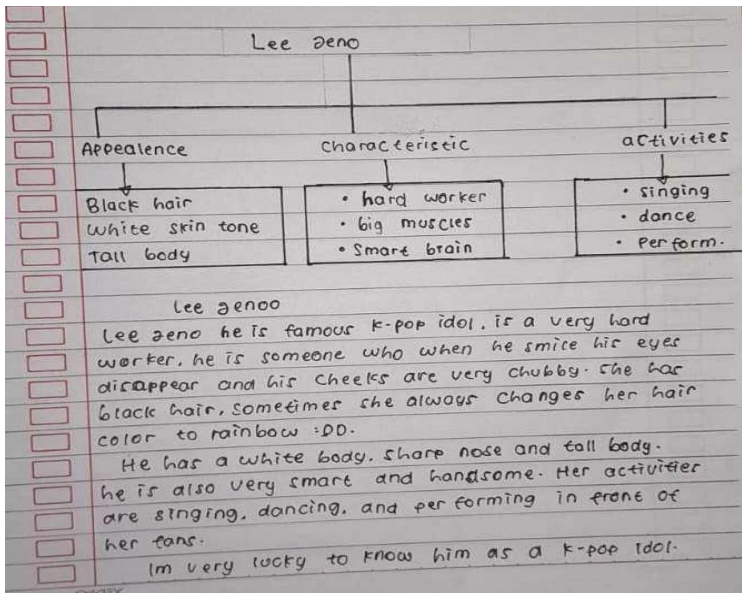 Lee Jeno
Appealence
characteristic
activities
Black hair
white skin tone
Tall body
• hard worker
• big muscles
• Smart brain
• singing
• dance
• perform.
Lee Jenoo
Lee Jeno he is famous k-pop idol, is a very hard
worker, he is someone who when he smice his eyes
disappear and his cheeks are very chubby. she has
black hair, sometimes she always changes her hair
color to rainbow :DD.
He has a white body, sharp nose and tall body.
he is also very smart and handsome. Her activities
are singing, dancing, and performing in front of
her fans.
Im very lucky to know him as a k-pop idol.